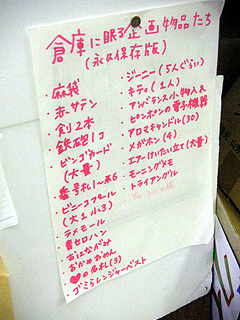 倉庫に眠る企画物品たち
(永の保存版)
・麻袋
・赤サテン
・剣2本
・鉄砲1コ
・ビンゴカード
(大量)
・番号札1〜
・ビニールプール
(大1小3)
・ラメモール
・青セロハン
・おはながみ
・おかめおめん
・♥の名札(3)
・ゴミらレンジャーベスト
・ジーニー(5人ぐらい)
・キティ(1人)
・アンパンマン小物入れ
・ピンポンの電子機器
・アロマキャンドル(30)
・メガホン(4)
・エアーけいたい立て(大量)
・モーニングメモ
・トライアングル